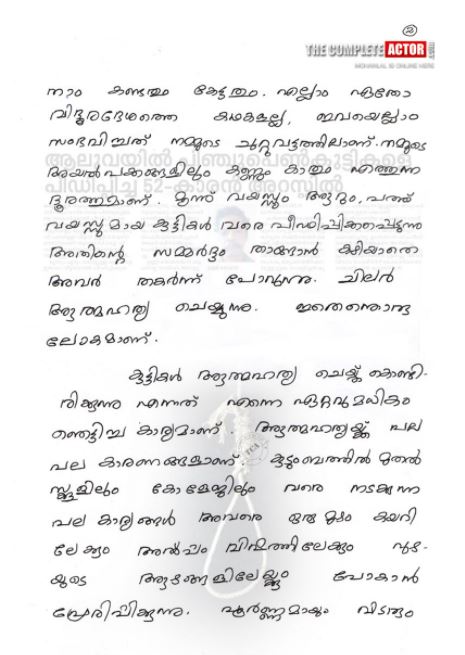 2
THE COMPLETE ACTOR .COM
MOHANLAL IS ONLINE HERE
നാം കണ്ടതും കേട്ടതും. എല്ലാം ഏതോ
വിദൂരദേശത്തെ കഥകളല്ല, ഇവയെല്ലാം
സംഭവിച്ചത് നമ്മുടെ ചുറ്റുവട്ടത്തിലാണ്. നമ്മുടെ
ആലുവയിൽ പിഞ്ചുപെൺകുട്ടികളെ
അയൽപക്കങ്ങളിലും കണ്ണും കാതും എത്തുന്ന
പീഡിപ്പിച്ച 52-കാരൻ അറസ്റ്റിൽ
ദൂരത്തുമാണ്. മൂന്ന് വയസ്സും ആറും, പത്ത്
വയസ്സുമായ കുട്ടികൾ വരെ പീഡിപ്പിക്കപ്പെടുന്നു
അതിന്റെ സമ്മർദ്ദം താങ്ങാൻ കഴിയാതെ
അവർ തകർന്ന് പോവുന്നു. ചിലർ
ആത്മഹത്യ ചെയ്യുന്നു. ഇതെന്തൊരു
ലോകമാണ്.
കുട്ടികൾ ആത്മഹത്യ ചെയ്തു കൊണ്ടി-
രിക്കുന്നു എന്നത് എന്നെ ഏറ്റവുമധികം
ഞെട്ടിച്ച കാര്യമാണ്. ആത്മഹത്യയ്ക്ക് പല
പല കാരണങ്ങളാണ്. കുടുംബത്തിൽ മുതൽ
സ്കൂളിലും കോളേജിലും വരെ നടക്കുന്ന
പല കാര്യങ്ങൾ അവരെ ഒരു മുഴം കയറി
ലേക്കും അൽപ്പം വിഷത്തിലേക്കും പുഴ-
യുടെ ആഴങ്ങളിലേയ്ക്കും പോകാൻ
പ്രേരിപ്പിക്കുന്നു. പൂർണ്ണമായും വിടരും